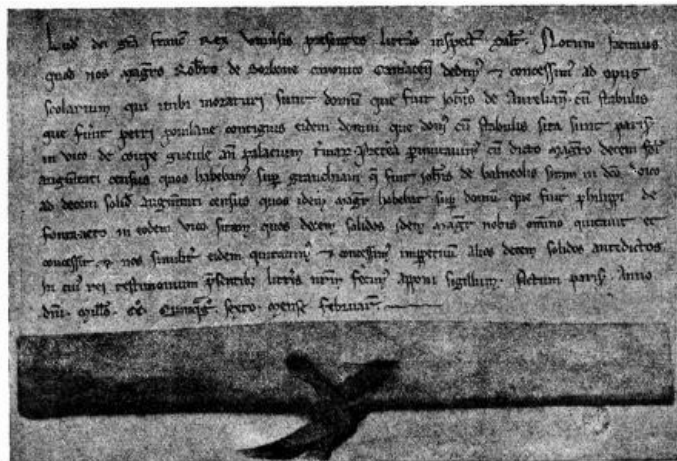 Lud dei gra franc Rex Univsis presentes litras inspectur Salt. Notum facimus
quod nos magro Robto de Sorbone canonico dedim 7 concessim ad opus
scolarium qui inibi moraturi sunt domu que fuit johis de Aurelian cu stabulis
que fuit petri contiguis eidem domui que dom cu stabulis sita sunt paris
in vico de coupe gueule an palacium permutavim cu dicto magro decem sol
augmtati census quos habebam sup fuit johis de balneolis sitam in vico
ad decem solid augmtati census quos idem magr habebat sup domu que fuit philippi de
in eodem vico sitam quos decem solidos idem magr nobis omnino quitavit et
concessit. 7 nos similit eidem quitavim 7 concessim alios decem solidos antedictos
In cui rei testimonium psentib litris nrm fecim apponi sigillum. Actum paris. Anno
dni. mill. cc. quinqg. sexto. mense februar.